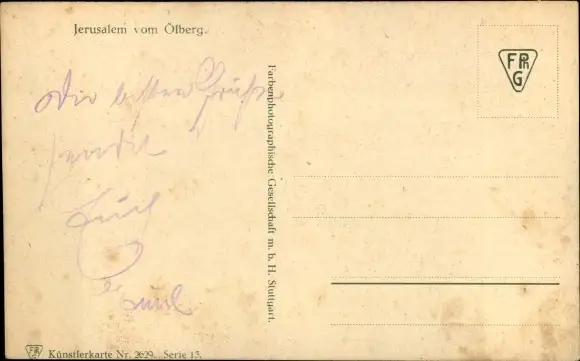 Jerusalem vom Ölberg.
Die besten Grüße
sendet
Euch
Farbenphotographische Gesellschaft m. b. H. Stuttgart.
FPhG
FPhG Künstlerkarte Nr. 2629. Serie 13.